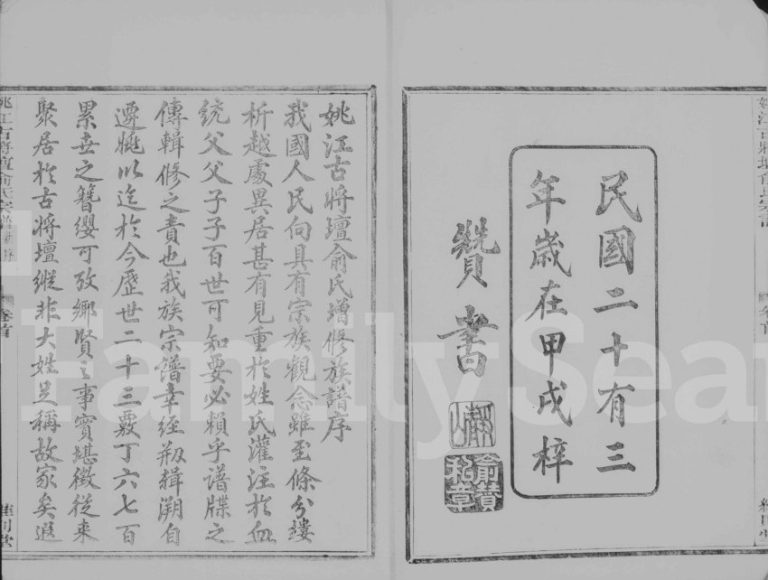 民國二十有三
年歲在甲戌梓
贊書
俞贊
私章
姚江古將壇俞氏增修族譜序
我國人民向具有宗族觀念雖至條分縷
析越處異居甚有見重於姓氏灌注於血
統父父子子百世可知要必賴乎譜牒之
傳輯修之責也我族宗譜幸經剏輯溯自
遷姚以迄於今歷世二十三覈丁六七百
累世之簪纓可攷鄉賢之事實堪徵從來
聚居於古將壇縱非大姓足稱故家矣遐
姚江古將壇俞氏宗譜
卷首
FamilySear